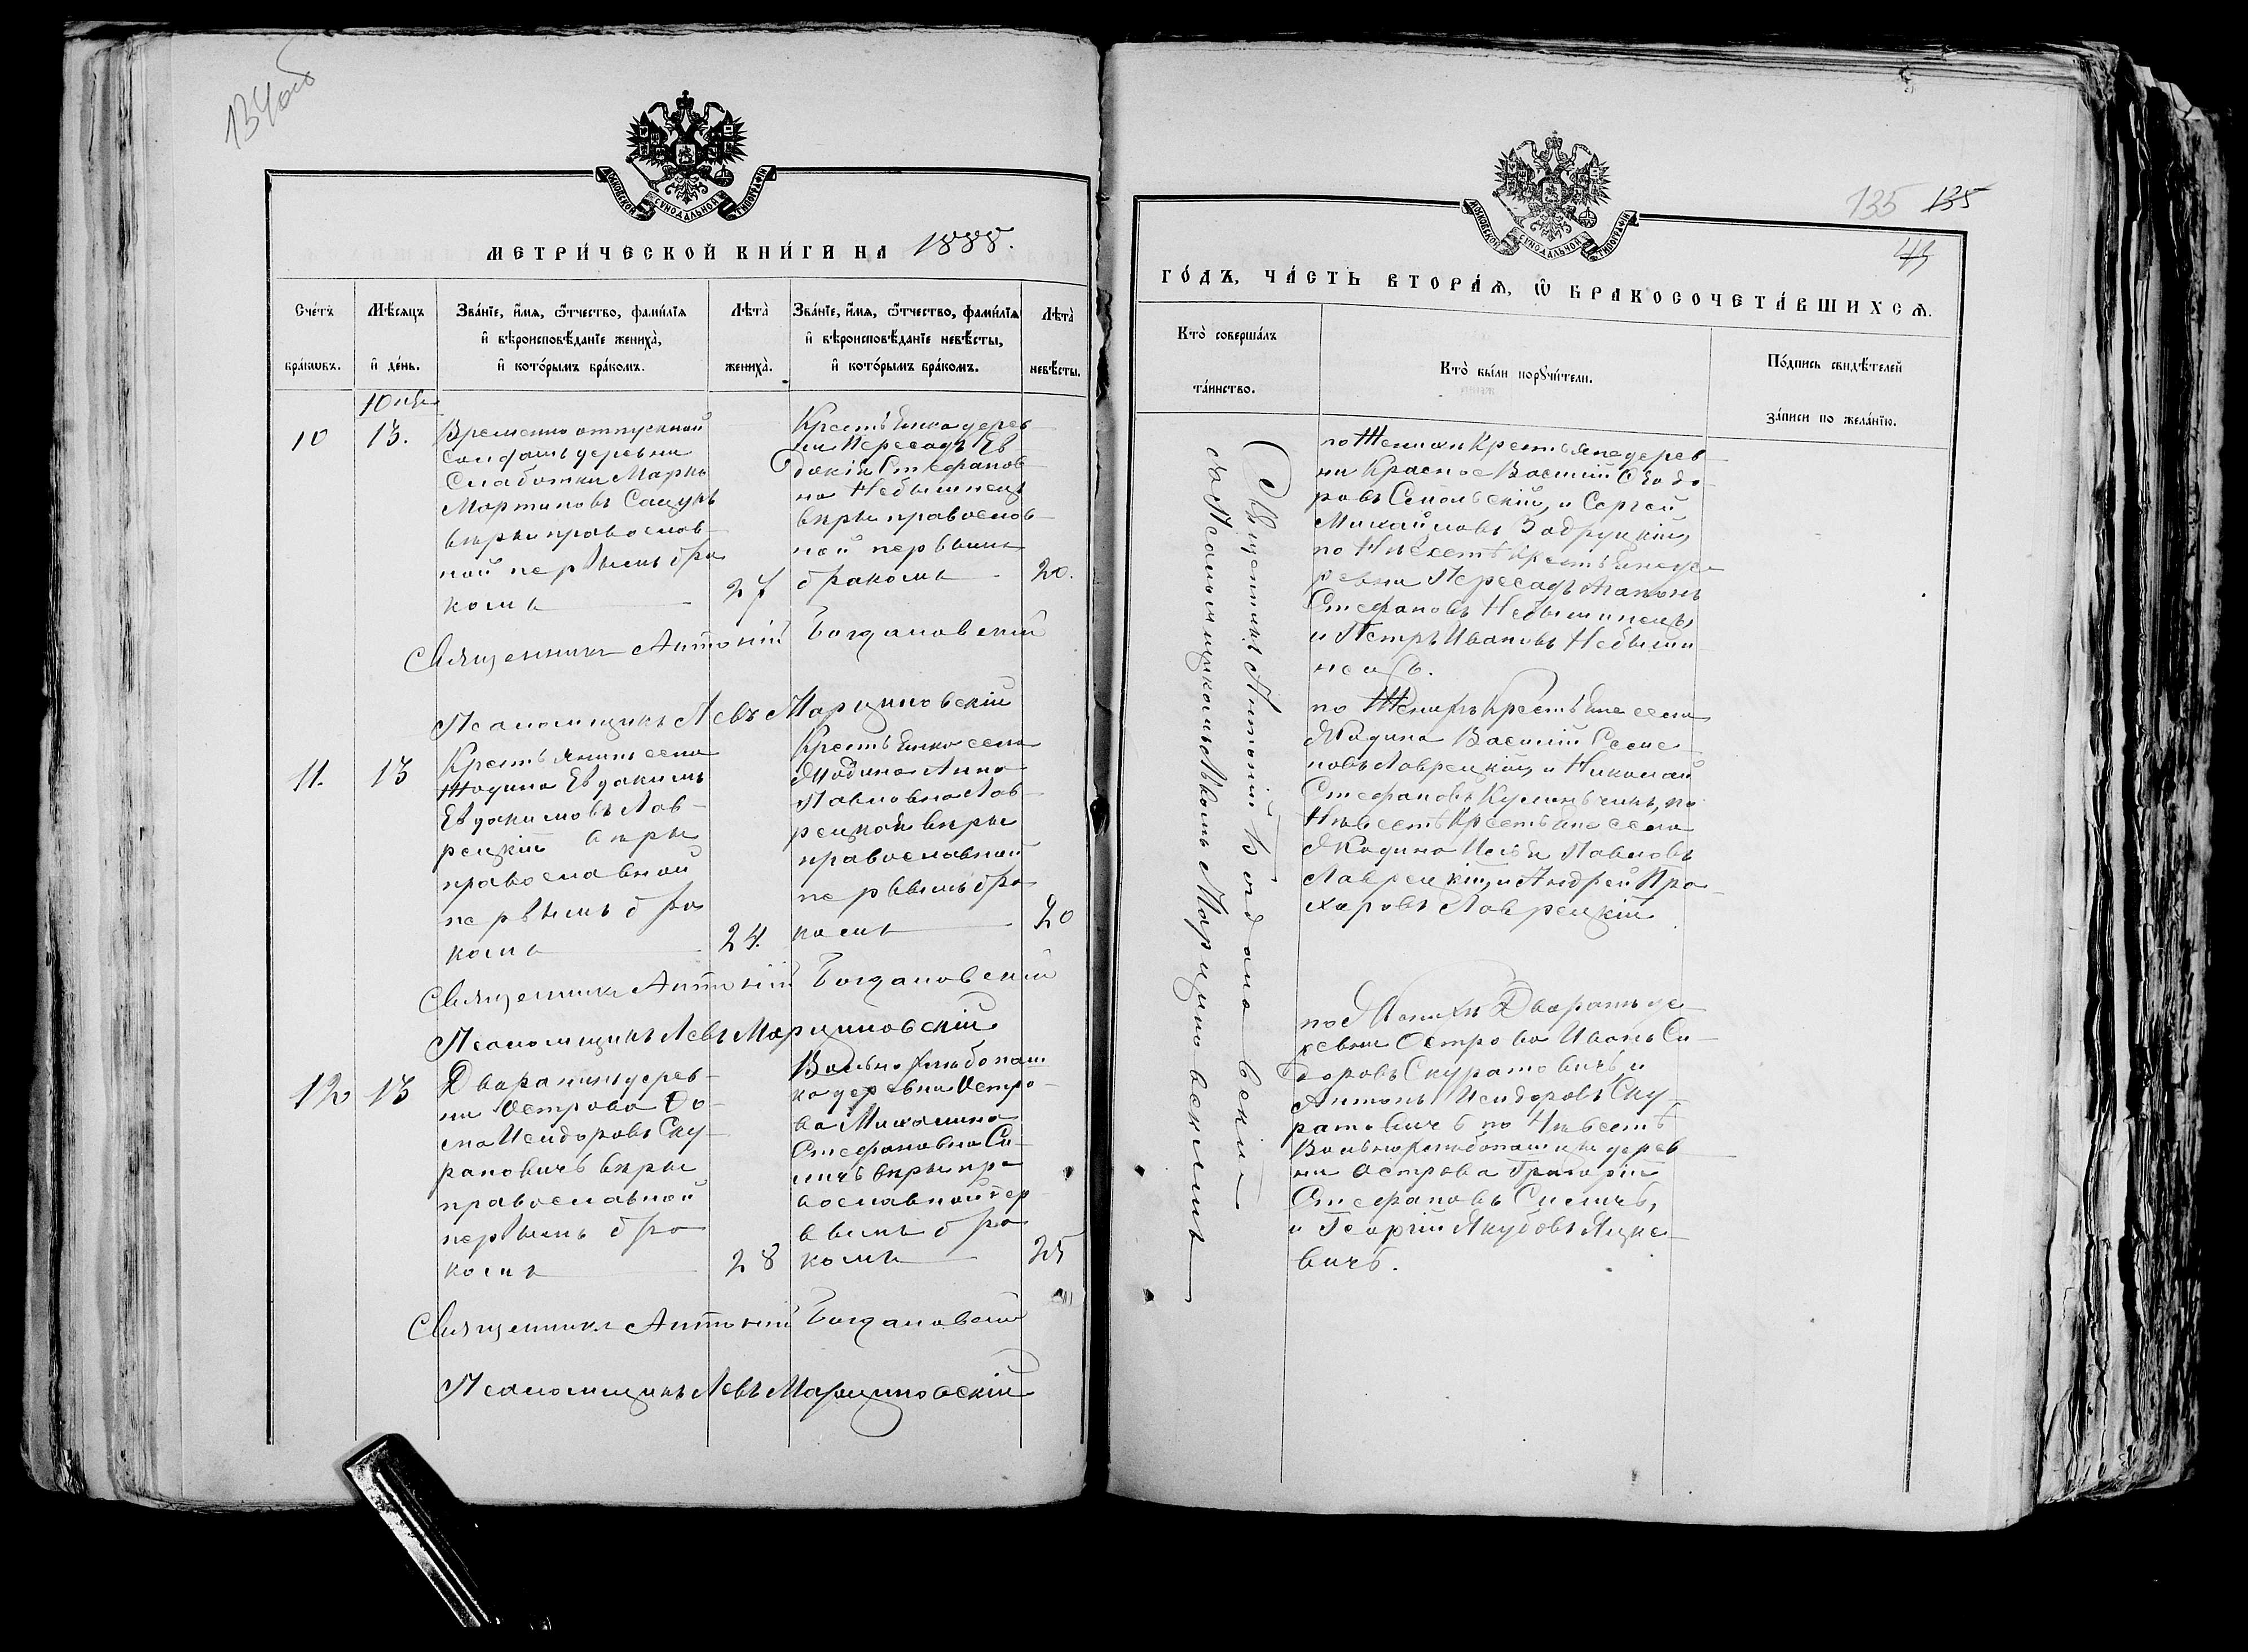 134об
МОСКОВСКОЙ СУНОДАЛЬНОЙ ТИПОГРАФІИ
МЕТРИ́ЧЕСКОЙ КНИ́ГИ НА 1888.
Сче́тъ бра́кωвъ.
Мѣ́сяцъ и҆ де́нь.
Зва́нїе, и҆́мѧ, ѻ҆́тчество, фами́лїѧ
и҆ вѣроисповѣ́данїе жениха̀,
и҆ кото́рымъ бра́комъ.
Лѣта̀ жениха̀.
Зва́нїе, и҆́мѧ, ѻ҆́тчество, фами́лїѧ
и҆ вѣроисповѣ́данїе невѣ́сты,
и҆ кото́рымъ бра́комъ.
Лѣта̀ невѣ́сты.
10
13.
Временно отпускной
солдатъ деревни
Слаботки Марко
Мартиновъ Сацукъ
вѣры православ
ной первымъ бра
комъ
27
Крестьянка дерев
ни Пересадъ Ев
докія Стефанов
на Небышинецъ
вѣры православ
ной первымъ
бракомъ
20.
Священникъ Антоній Богдановскій
Псаломщикъ Левъ Марциновскій
11.
13
Крестьянинъ села
Жодина Евдокимъ
Евдокимовъ Лав-
рецкій вѣры
православной
первымъ бра
комъ
24.
Крестьянка села
Жодина Анна
Павловна Лав-
рецкая вѣры
православной
первымъ бра
комъ
20
Священникъ Антоній Богдановскій
Псаломщикъ Левъ Марциновскій
12
13
Дваранинъ дерев-
ни Острова Ѳо-
ма Исидоровъ Ску-
ратовичъ вѣры
православной
первымъ бра
комъ
28
Вольнохлѣбопаш
ка деревни Остро-
ва Михалина
Стефановна Си-
личъ вѣры пра
вославной пер
вымъ бра
комъ
25
Священникъ Антоній Богдановскій
Псаломщикъ Левъ Марциновскій
135 135
49
МОСКОВСКОЙ СУНОДАЛЬНОЙ ТИПОГРАФІИ
ГО́ДЪ, ЧА́СТЬ ВТОРА́Ѧ, Ѡ҆ БРАКОСОЧЕТА́ВШИХСѦ.
Кто̀ соверша́лъ та́инство.
Кто̀ бы́ли порꙋчи́тели.
По́дпись свидѣ́телей
за́писи по жела́нїю.
Священникъ Антоній Богдановскій
съ Псаломщикомъ Львомъ Марциновскимъ
по Женихѣ Крестьяне дерев
ни Красное Василій Ѳеодо
ровъ Сипольскій, и Сергей
Михайловъ Задруцкій,
по Невѣстѣ Крестьяне де
ревни Пересадъ Агапонъ
Стефановъ Небышинецъ
и Петръ Ивановъ Небыши
нецъ.
по Женихѣ Крестьяне села
Жодина Василій Семе
новъ Лаврецкій, и Николай
Стефановъ Кузьмичикъ, по
Невѣстѣ Крестьяне села
Жодина Павловъ
Лаврецкій, и Андрей Про
харовъ Лаврецкій
по Женихѣ Дваране де
ревни Острова Иванъ Си
доровъ Скуратовичъ и
Антонъ Исидоровъ Ску-
ратовичъ по Невѣстѣ
Вольнохлѣбопашцы дерев
ни Острова Григорій
Стефановъ Силичъ,
и Георгій Якубовъ Яцке
вичъ.